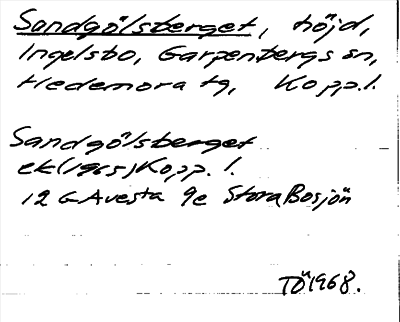 Sandgölsberget, höjd,
Ingelsbo, Garpenbergs sn,
Hedemora tg, Kopp. l.
Sandgölsberget
ek (1965) Kopp. l.
12 G Avesta 9e Stora Bosjön
TÖ 1968.